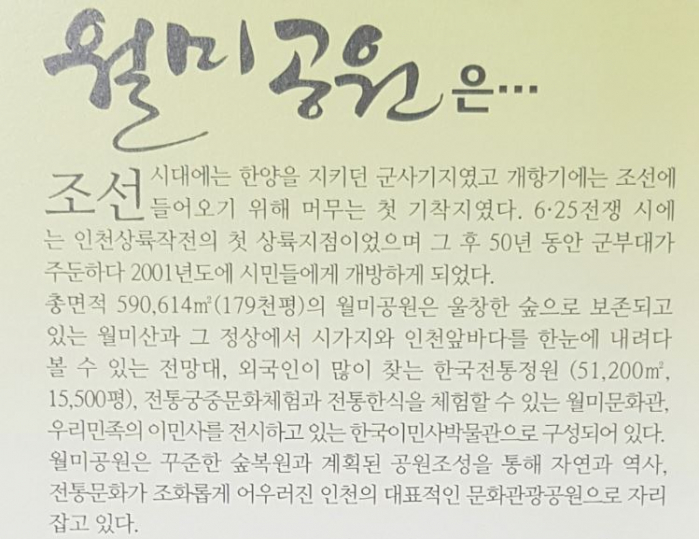 월미공원은…
조선시대에는 한양을 지키던 군사기지였고 개항기에는 조선에
들어오기 위해 머무는 첫 기착지였다. 6·25전쟁 시에
는 인천상륙작전의 첫 상륙지점이었으며 그 후 50년 동안 군부대가
주둔하다 2001년도에 시민들에게 개방하게 되었다.
총면적 590,614㎡(179천평)의 월미공원은 울창한 숲으로 보존되고
있는 월미산과 그 정상에서 시가지와 인천앞바다를 한눈에 내려다
볼 수 있는 전망대, 외국인이 많이 찾는 한국전통정원 (51,200㎡,
15,500평), 전통궁중문화체험과 전통한식을 체험할 수 있는 월미문화관,
우리민족의 이민사를 전시하고 있는 한국이민사박물관으로 구성되어 있다.
월미공원은 꾸준한 숲복원과 계획된 공원조성을 통해 자연과 역사,
전통문화가 조화롭게 어우러진 인천의 대표적인 문화관광공원으로 자리
잡고 있다.